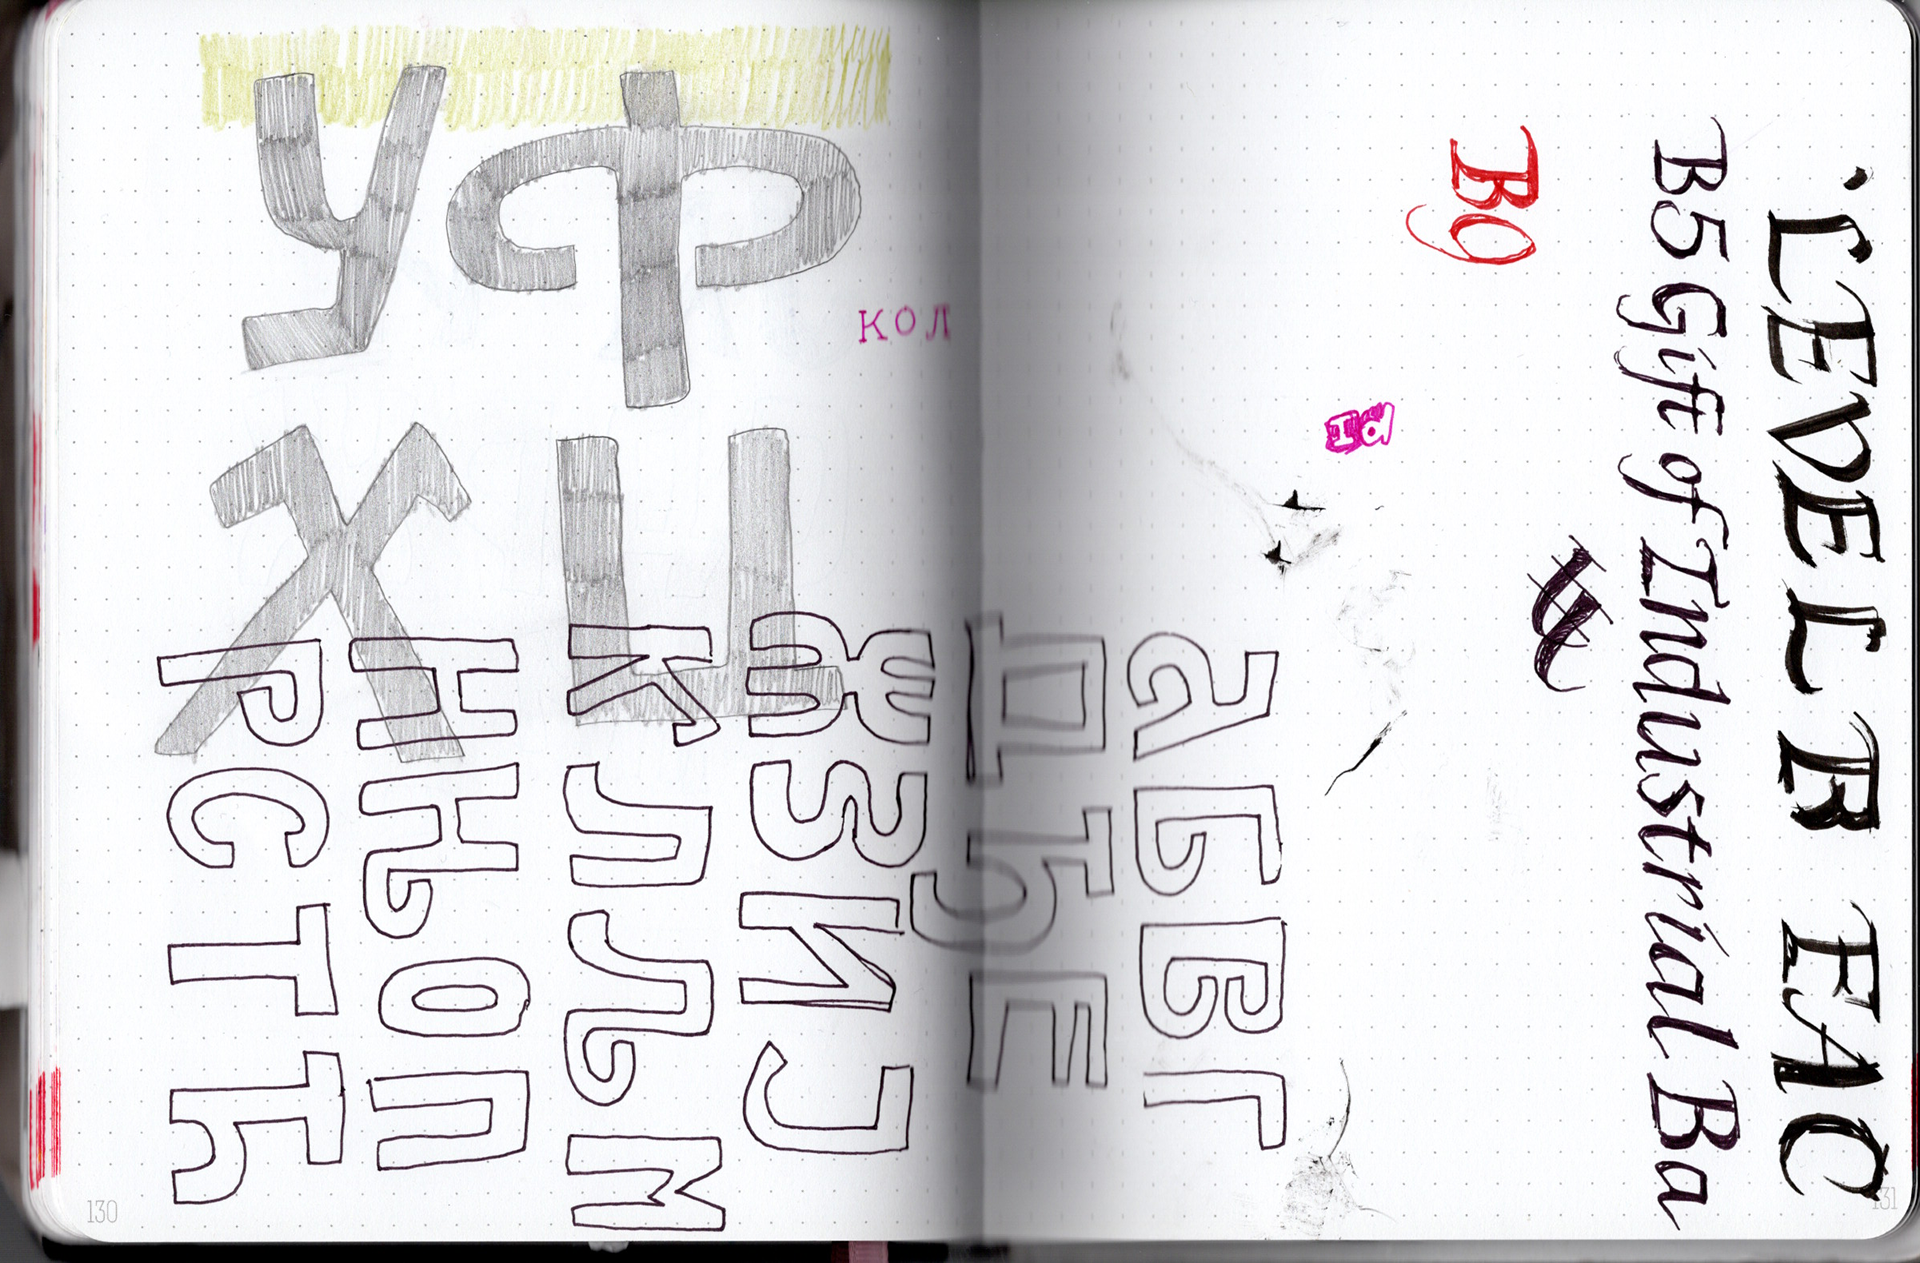 УФ
кол
ХЦ
аБВГ
ДЂЕ
ЖЗИЈ
КЛЉМ
НЊОП
РСТЋ
130
'LEVELR EAC
B5 Gift of Industrial Ba
B9
131